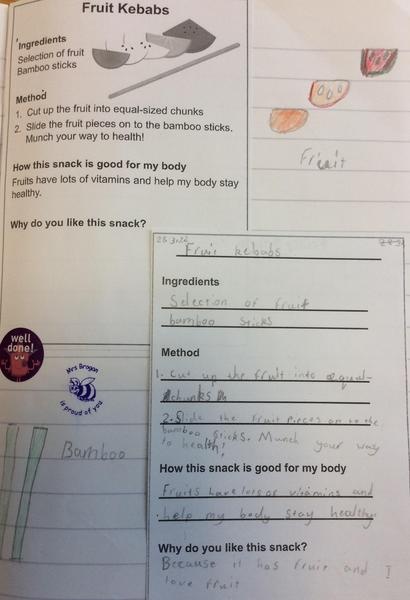 Fruit Kebabs
Ingredients
Selection of fruit
Bamboo sticks
Method
1. Cut up the fruit into equal-sized chunks
2. Slide the fruit pieces on to the bamboo sticks.
Munch your way to health!
How this snack is good for my body
Fruits have lots of vitamins and help my body stay
healthy.
Why do you like this snack?
Fruit
well
done!
Mrs Brogan
is proud of you
Bamboo
28.3.22
Fruit kebabs
Ingredients
Selection of fruit
bamboo sticks
Method
1. Cut up the fruit into equal-
chunks
2. Slide the fruit pieces on to the
bamboo sticks. Munch your way
to health!
How this snack is good for my body
Fruits have lots of vitamins and
help my body stay healthy.
Why do you like this snack?
Because it has fruit and I
love fruit